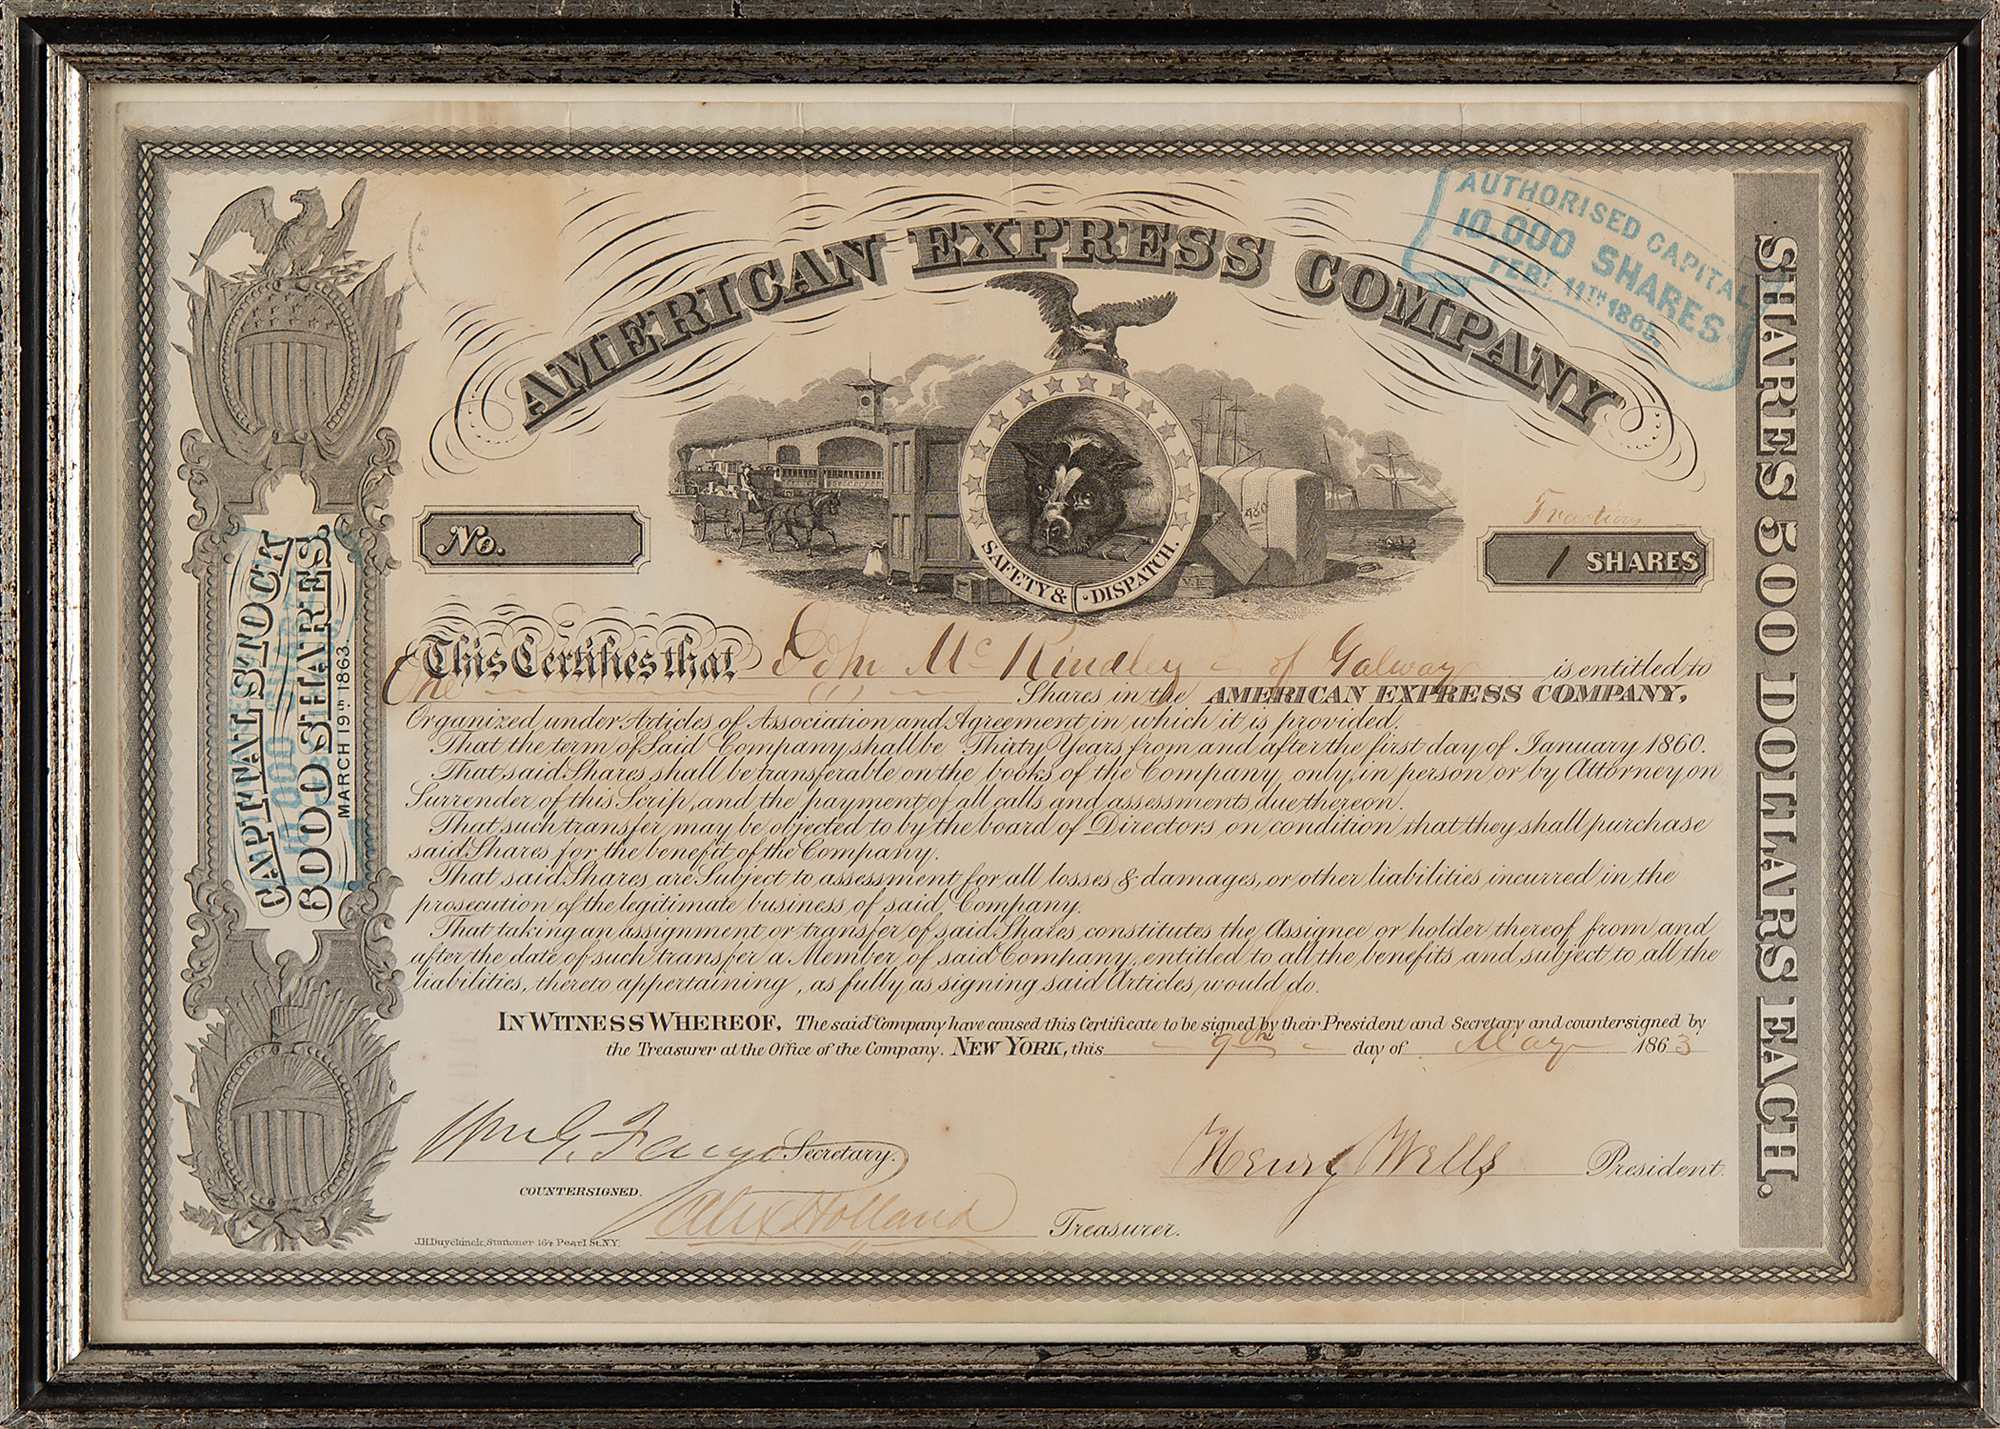 AMERICAN EXPRESS COMPANY
AUTHORISED CAPITAL
10.000 SHARES
FEBY. 11TH 1865.
SAFETY & DISPATCH.
480
No.
Fraction
1 SHARES
CAPITAL STOCK
6000 SHARES.
MARCH 19TH 1863.
SHARES 500 DOLLARS EACH.
This Certifies that John McKindley of Galway is entitled to
One (1) Shares in the AMERICAN EXPRESS COMPANY,
Organized under Articles of Association and Agreement in which it is provided.
That the term of Said Company shall be Thirty Years from and after the first day of January 1860.
That said Shares shall be transferable on the books of the Company, only, in person or by Attorney on
Surrender of this Scrip, and the payment of all calls and assessments due thereon.
That such transfer may be objected to by the board of Directors on condition that they shall purchase
said Shares for the benefit of the Company.
That said Shares are Subject to assessment for all losses & damages, or other liabilities incurred in the
prosecution of the legitimate business of said Company.
That taking an assignment or transfer of said Shares constitutes the Assignee or holder thereof from and
after the date of such transfer a Member of said Company, entitled to all the benefits and subject to all the
liabilities, thereto appertaining, as fully as signing said Articles would do.
IN WITNESS WHEREOF, The said Company have caused this Certificate to be signed by their President and Secretary and countersigned by
the Treasurer at the Office of the Company. NEW YORK, this 9th day of May 1863
Wm G. Fargo Secretary.
Henry Wells President.
COUNTERSIGNED.
Alex Holland Treasurer.
J.H. Duyckinck, Stationer 164 Pearl St. N.Y.